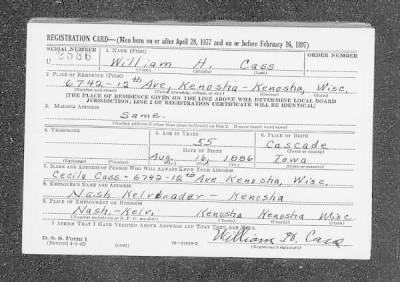 REGISTRATION CARD—(Men born on or after April 28, 1877 and on or before February 16, 1897)
SERIAL NUMBER 1. NAME (Print) ORDER NUMBER
U William H. Cass
(First) (Middle) (Last)
2. PLACE OF RESIDENCE (Print)
6742-12th Ave, Kenosha-Kenosha, Wisc.
(Number and street) (Town, township, village, or city) (County) (State)
[THE PLACE OF RESIDENCE GIVEN ON THE LINE ABOVE WILL DETERMINE LOCAL BOARD
JURISDICTION; LINE 2 OF REGISTRATION CERTIFICATE WILL BE IDENTICAL]
3. MAILING ADDRESS
Same.
[Mailing address if other than place indicated on line 2. If same insert word same]
4. TELEPHONE 5. AGE IN YEARS 6. PLACE OF BIRTH
55 Cascade
DATE OF BIRTH (Town or county)
Aug. 16, 1886 Iowa
(Exchange) (Number) (Mo.) (Day) (Yr.) (State or country)
7. NAME AND ADDRESS OF PERSON WHO WILL ALWAYS KNOW YOUR ADDRESS
Cecila Cass-6742-12th Ave Kenosha, Wisc.
8. EMPLOYER'S NAME AND ADDRESS
Nash Kelvinator - Kenosha
9. PLACE OF EMPLOYMENT OR BUSINESS
Nash-Kelvi. Kenosha Kenosha Wisc.
(Number and street or R. F. D. number) (Town) (County) (State)
I AFFIRM THAT I HAVE VERIFIED ABOVE ANSWERS AND THAT THEY ARE TRUE.
D. S. S. Form 1 William H. Cass
(Revised 4-1-42) (over) (Registrant's signature)